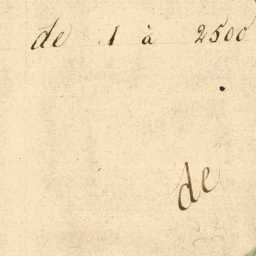 de 1 à 2500
de